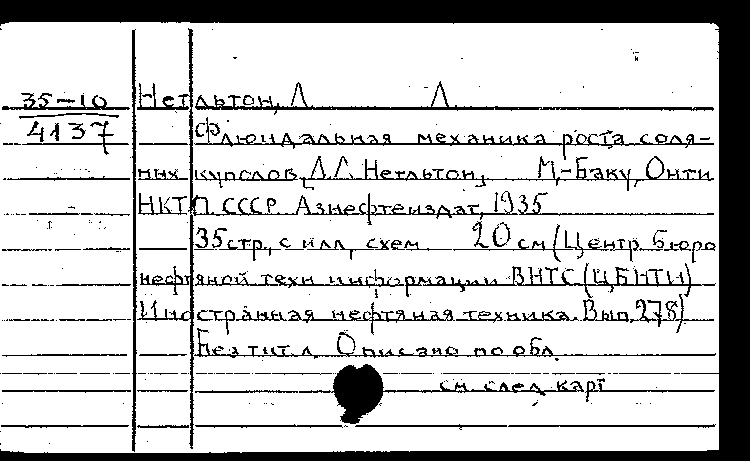 35-10 Нетльтон, Л. Л.
4137 Флюидальная механика роста соля-
ных куполов, Л.Л. Нетльтон, М.-Баку, Онти
НКТП СССР Азнефтеиздат, 1935
35 стр., с илл, схем. 20 см (Центр. Бюро
нефтяной техн информации ВНТС (ЦБНТИ)
Иностранная нефтяная техника. Вып. 278)
Без тит л. Описано по обл.
см. след карт